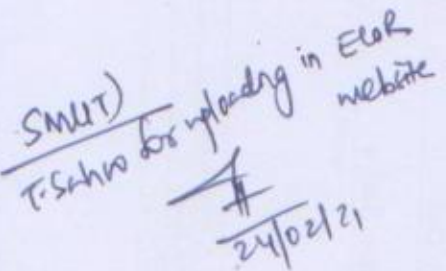 SMM(IT)
T. Sahoo for uploading in ECoR
website
24/02/21